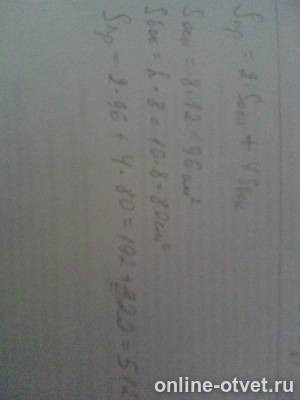 Sпр = 2·Sосн + 4Sбок
Sосн = 8·12 = 96 см²
Sбок = h·8 = 10·8 = 80 см²
Sпр = 2·96 + 4·80 = 192 + 320 = 512
online-otvet.ru